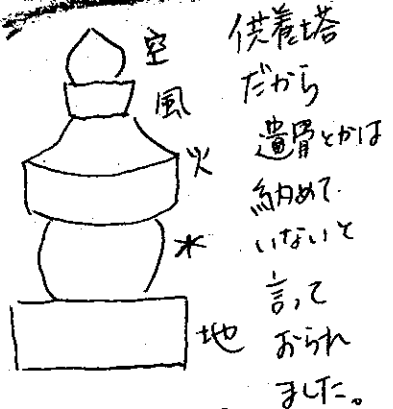 空
風
火
水
地
供養塔
だから
遺骨とかは
納めて
いないと
言って
おられ
ました。